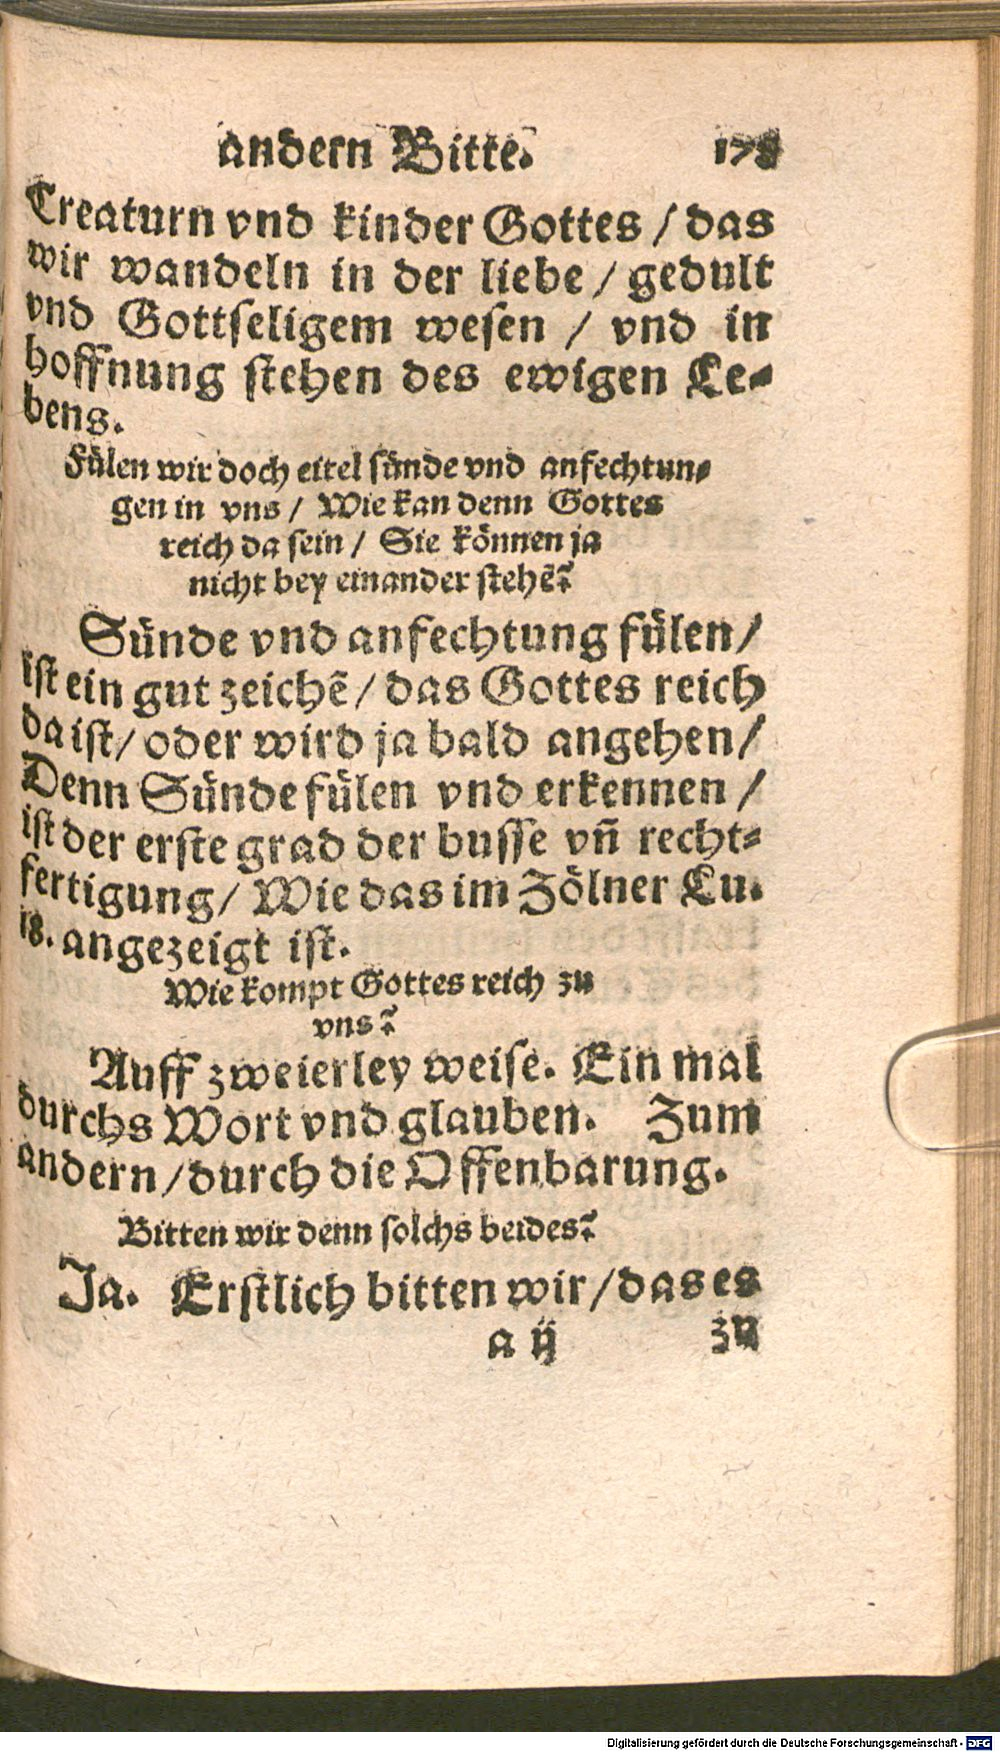 andern Bitte. 178
Creaturn vnd kinder Gottes / das
wir wandeln in der liebe / gedult
vnd Gottseligem wesen / vnd in
hoffnung stehen des ewigen Le-
bens.
Fülen wir doch eitel sünde vnd anfechtun-
gen in vns / Wie kan denn Gottes
reich da sein / Sie können ja
nicht bey einander stehẽ?
Sünde vnd anfechtung fülen /
ist ein gut zeichẽ / das Gottes reich
da ist / oder wird ja bald angehen /
Denn Sünde fülen vnd erkennen /
ist der erste grad der busse vñ recht-
fertigung / Wie das im Zölner Lu.
18. angezeigt ist.
Wie kompt Gottes reich zu
vns?
Auff zweierley weise. Ein mal
durchs Wort vnd glauben. Zum
andern / durch die Offenbarung.
Bitten wir denn solchs beides?
Ja. Erstlich bitten wir / das es
a ij zu
Digitalisierung gefördert durch die Deutsche Forschungsgemeinschaft - DFG